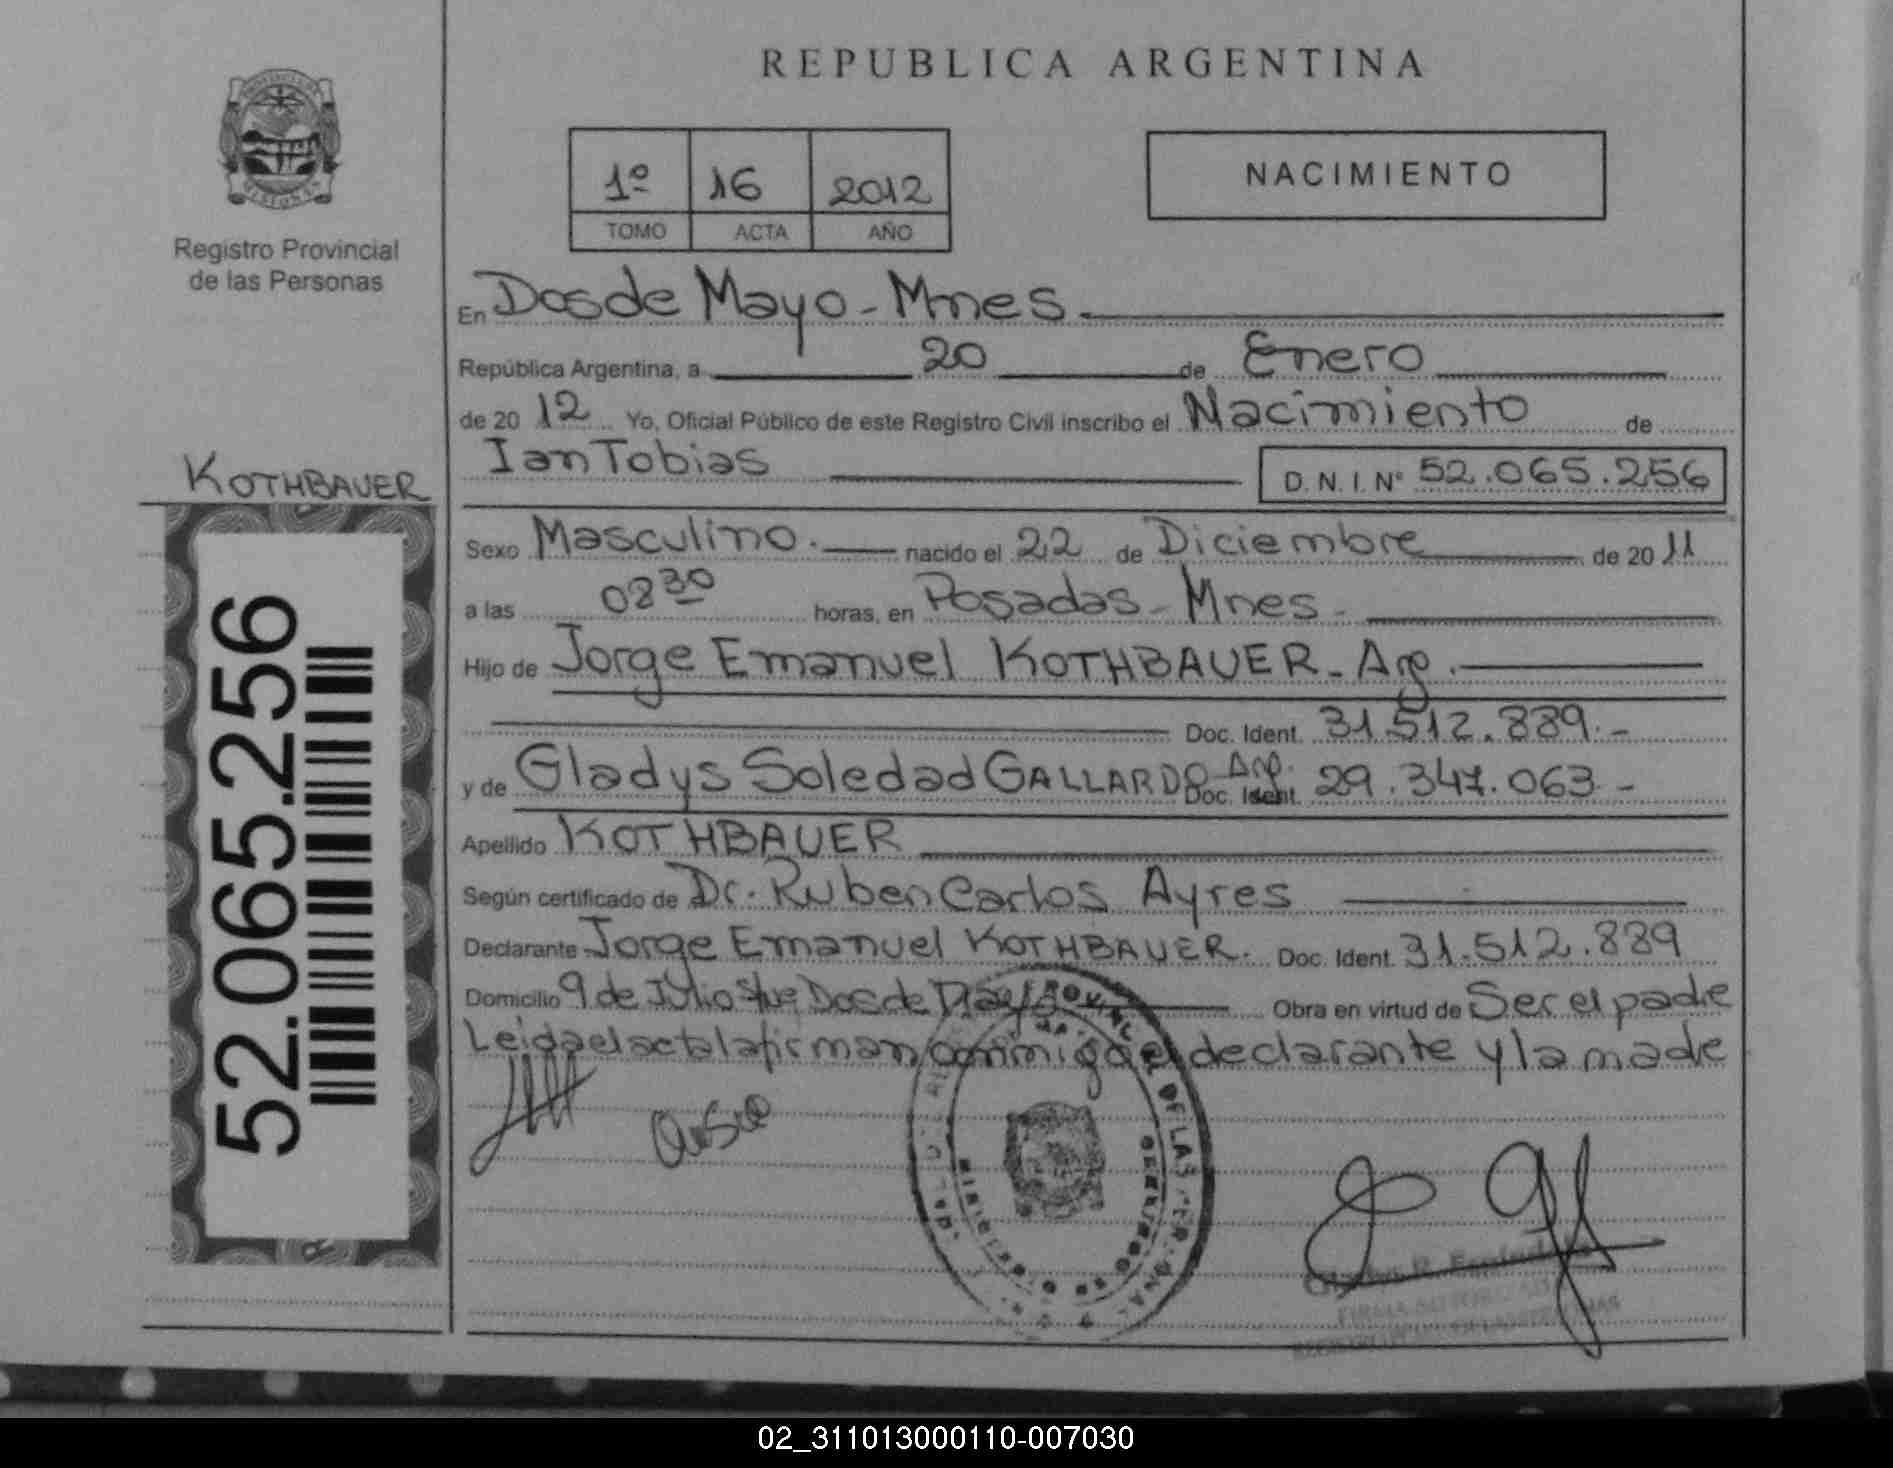 REPUBLICA ARGENTINA
Registro Provincial
de las Personas
1º 16 2012
TOMO ACTA AÑO
NACIMIENTO
En Dos de Mayo - Mnes
República Argentina, a 20 de Enero
de 2012 Yo, Oficial Público de este Registro Civil inscribo el Nacimiento de
Ian Tobias D. N. I. Nº 52.065.256
KOTHBAUER
52.065.256
Sexo Masculino. nacido el 22 de Diciembre de 2011
a las 08 30 horas, en Posadas - Mnes -
Hijo de Jorge Emanuel KOTHBAUER - Arg.
Doc. Ident. 31.512.889.-
y de Gladys Soledad GALLARDO - Arg. Doc. Ident. 29.347.063 -
Apellido KOTHBAUER
Según certificado de Dr. Ruben Carlos Ayres
Declarante Jorge Emanuel KOTHBAUER. Doc. Ident. 31.512.889
Domicilio 9 de Julio Dos de Mayo Obra en virtud de Ser el padre
Leida el acta la firman conmigo el declarante y la madre
02_311013000110-007030